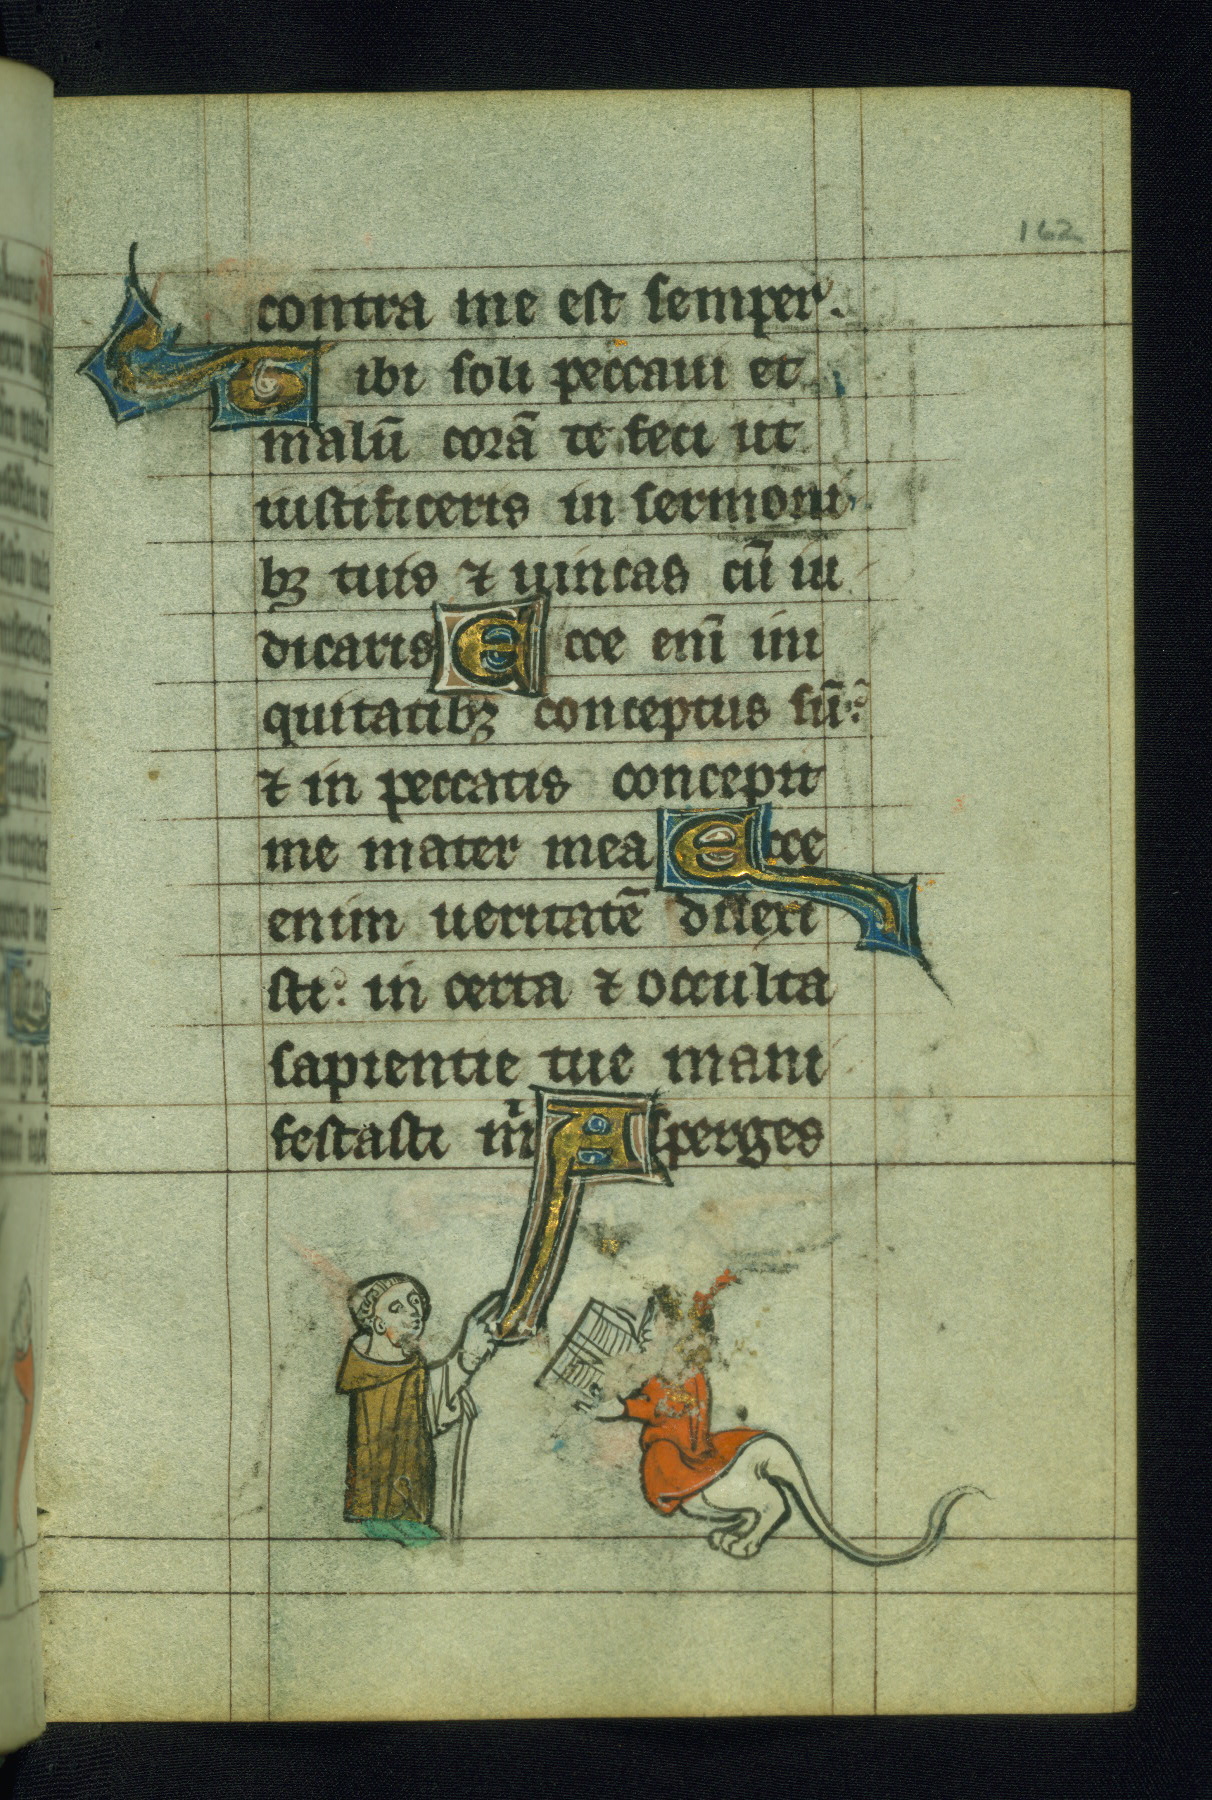 162
contra me est semper.
Tibi soli peccaui et
malū corā te feci ut
iustificeris in sermoni
bꝫ tuis ⁊ uincas cū iu
dicaris Ecce enī ini
quitatibꝫ conceptus sū:
⁊ in peccatis concepit
me mater mea Ecce
enim ueritatē dilexi
sti: in certa ⁊ occulta
sapientie tue mani
festasti m̄ Asperges